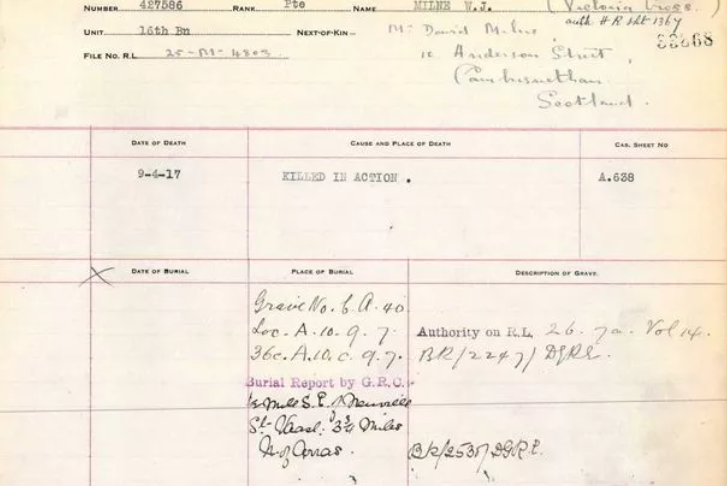 NUMBER 427586 RANK Pte NAME MILNE W.J. (Victoria Cross.)
auth. H R sht 1367
UNIT 16th Bn NEXT-OF-KIN— Mr David Milne, 33868
FILE NO. R.L. 25-M-4803 12 Anderson Street,
Cambusnethan
Scotland.
DATE OF DEATH CAUSE AND PLACE OF DEATH CAS. SHEET NO
9-4-17 KILLED IN ACTION. A.638
DATE OF BURIAL PLACE OF BURIAL DESCRIPTION OF GRAVE.
Grave No. 6. A. 40.
Loc. A. 10. 9. 7. Authority on R.L. 26. Vol 14.
36c. A. 10. c. 9. 7. BR/2247/DGRE.
Burial Report by G.R.C.
Mile S.E. Neuville
St. Vaast. 3¾ Miles
N. of Arras. BR/2535/DGRE.